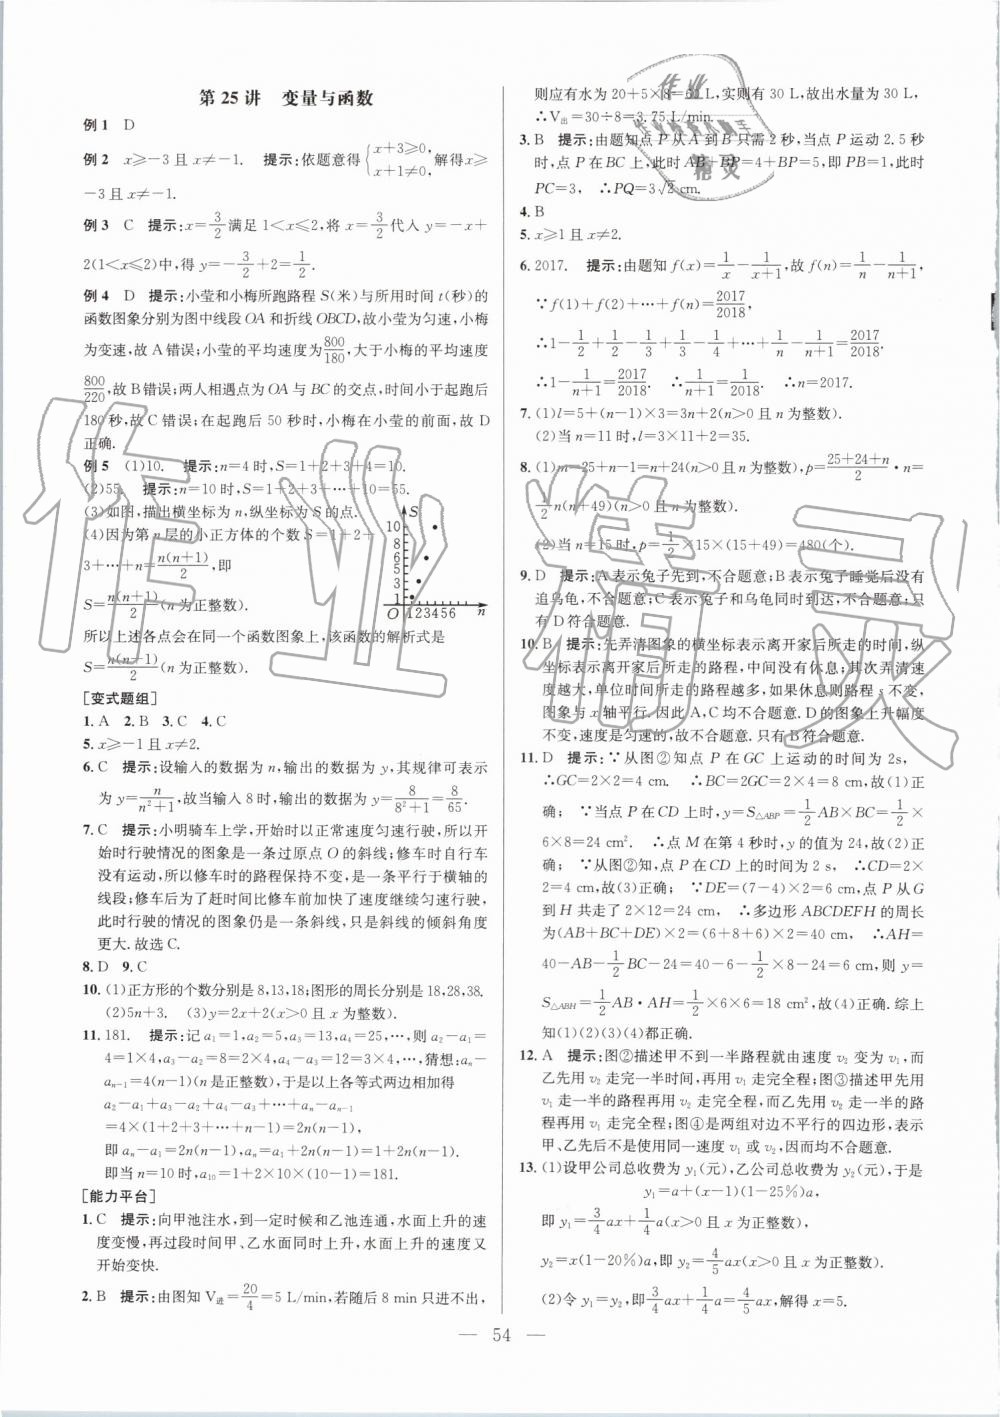 第25讲 变量与函数
例1 D
例2 x≥-3且x≠-1. 提示:依题意得{x+3≥0, x+1≠0, 解得x≥
-3且x≠-1.
例3 C 提示:x=3/2满足1<x≤2,将x=3/2代入y=-x+
2(1<x≤2)中,得y=-3/2+2=1/2.
例4 D 提示:小莹和小梅所跑路程S(米)与所用时间t(秒)的
函数图象分别为图中线段OA和折线OBCD,故小莹为匀速,小梅
为变速,故A错误;小莹的平均速度为800/180,大于小梅的平均速度
800/220,故B错误;两人相遇点为OA与BC的交点,时间小于起跑后
180秒,故C错误;在起跑后50秒时,小梅在小莹的前面,故D
正确.
例5 (1)10. 提示:n=4时,S=1+2+3+4=10.
(2)55. 提示:n=10时,S=1+2+3+…+10=55.
(3)如图,描出横坐标为n,纵坐标为S的点.
(4)因为第n层的小正方体的个数S=1+2+
3+…+n=n(n+1)/2,即
S=n(n+1)/2(n为正整数).
S
10
8
6
5
4
3
2
1
O 1 2 3 4 5 6 n
所以上述各点会在同一个函数图象上,该函数的解析式是
S=n(n+1)/2(n为正整数).
[变式题组]
1. A 2. B 3. C 4. C
5. x≥-1且x≠2.
6. C 提示:设输入的数据为n,输出的数据为y,其规律可表示
为y=n/(n²+1),故当输入8时,输出数据为8/(8²+1)=8/65.
7. C 提示:小明骑车上学,开始时以正常速度匀速行驶,所以开
始时行驶情况的图象是一条过原点O的斜线;修车时自行车
没有运动,所以修车时的路程保持不变,是一条平行于横轴的
线段;修车后为了赶时间比修车前加快了速度继续匀速行驶,
此时行驶的情况的图象仍是一条斜线,只是斜线的倾斜角度
更大.故选C.
8. D 9. C
10. (1)正方形的个数分别是8,13,18;图形的周长分别是18,28,38.
(2)5n+3. (3)y=2x+2(x>0且x为整数).
11. 181. 提示:记a₁=1,a₂=5,a₃=13,a₄=25,…,则a₂-a₁=
4=1×4,a₃-a₂=8=2×4,a₄-a₃=12=3×4,…,猜想:aₙ-
aₙ₋₁=4(n-1)(n是正整数),于是以上各等式两边相加得
a₂-a₁+a₃-a₂+a₄-a₃+…+aₙ-aₙ₋₁
=4×(1+2+3+…+n-1)
即aₙ-a₁=2n(n-1),aₙ=a₁+2n(n-1),
即当n=10时,a₁₀=1+2×10×(10-1)=181.
[能力平台]
1. C 提示:向甲池注水,到一定时候和乙池连通,水面上升的速
度变慢,再过段时间甲、乙水面同时上升,水面上升的速度又
开始变快.
2. B 提示:由图知V进=20/4=5 L/min,若随后8 min只进不出,
则应有水为20+5×8=60 L,实则有30 L,故出水量为30 L,
∴V出=30÷8=3.75 L/min.
3. B 提示:由题知点P从A到B只需2秒,当点P运动2.5秒
时,点P在BC上,此时AB+BP=4+BP=5,即PB=1,此时
PC=3, ∴PQ=3√2 cm.
4. B
5. x≥1且x≠2.
6. 2017. 提示:由题知f(x)=1/x-1/(x+1),故f(n)=1/n-1/(n+1),
∵f(1)+f(2)+…+f(n)=2017/2018,
∴1-1/2+1/2-1/3+1/3-1/4+…+1/n-1/(n+1)=2017/2018.
∴1-1/(n+1)=2017/2018. ∴1/(n+1)=1/2018. ∴n=2017.
7. (1)l=5+(n-1)×3=3n+2(n>0且n为整数).
(2)当n=11时,l=3×11+2=35.
8. (1)m=25+n-1=n+24(n>0且n为整数),p=(25+24+n)/2·n=
1/2n(n+49)(n>0且n为整数).
(2)当n=15时,p=1/2×15×(15+49)=480(个).
9. D 提示:A表示兔子先到,不合题意;B表示兔子睡觉后没有
追乌龟,不合题意;C表示兔子和乌龟同时到达,不合题意;只
有D符合题意.
10. B 提示:先弄清图象的横坐标表示离开家后所走的时间,纵
坐标表示离开家后所走的路程,中间没有休息;其次弄清速
度越大,单位时间所走的路程越多,如果休息则路程s不变,
图象与x轴平行.因此A,C均不合题意.D的图象上升幅度
不变,速度是匀速的,故不合题意.只有B符合题意.
11. D 提示:∵从图②知点P在GC上运动的时间为2s,
∴GC=2×2=4 cm. ∴BC=2GC=2×2×4=8 cm,故(1)正
确; ∵当点P在CD上时,y=S△ABP=1/2AB×BC=1/2×
6×8=24 cm². ∴点M在第4秒时,y的值为24,故(2)正
确; ∵从图②知,点P在CD上的时间为2 s, ∴CD=2×
2=4 cm,故(3)正确; ∵DE=(7-4)×2=6 cm,点P从G
到H共走了2×12=24 cm, ∴多边形ABCDEFH的周长
为(AB+BC+DE)×2=(6+8+6)×2=40 cm, ∴AH=
40-AB-1/2BC-24=40-6-1/2×8-24=6 cm,则y=
S△ABH=1/2AB·AH=1/2×6×6=18 cm²,故(4)正确.综上
知(1)(2)(3)(4)都正确.
12. A 提示:图②描述甲不到一半路程就由速度v₂变为v₁,而
乙先用v₂走完一半时间,再用v₁走完全程;图③描述甲先用
v₁走一半的路程再用v₂走完全程,而乙先用v₂走一半的路
程再用v₁走完全程;图④是两组对边不平行的四边形,表示
甲、乙先后不是使用同一速度v₁或v₂,因而均不合题意.
13. (1)设甲公司总收费为y₁(元),乙公司总收费为y₂(元),于是
y₁=a+(x-1)(1-25%)a,
即y₁=3/4ax+1/4a(x>0且x为正整数),
y₂=x(1-20%)a,即y₂=4/5ax(x>0且x为正整数).
(2)令y₁=y₂,即3/4ax+1/4a=4/5ax,解得x=5.
— 54 —
作业精灵